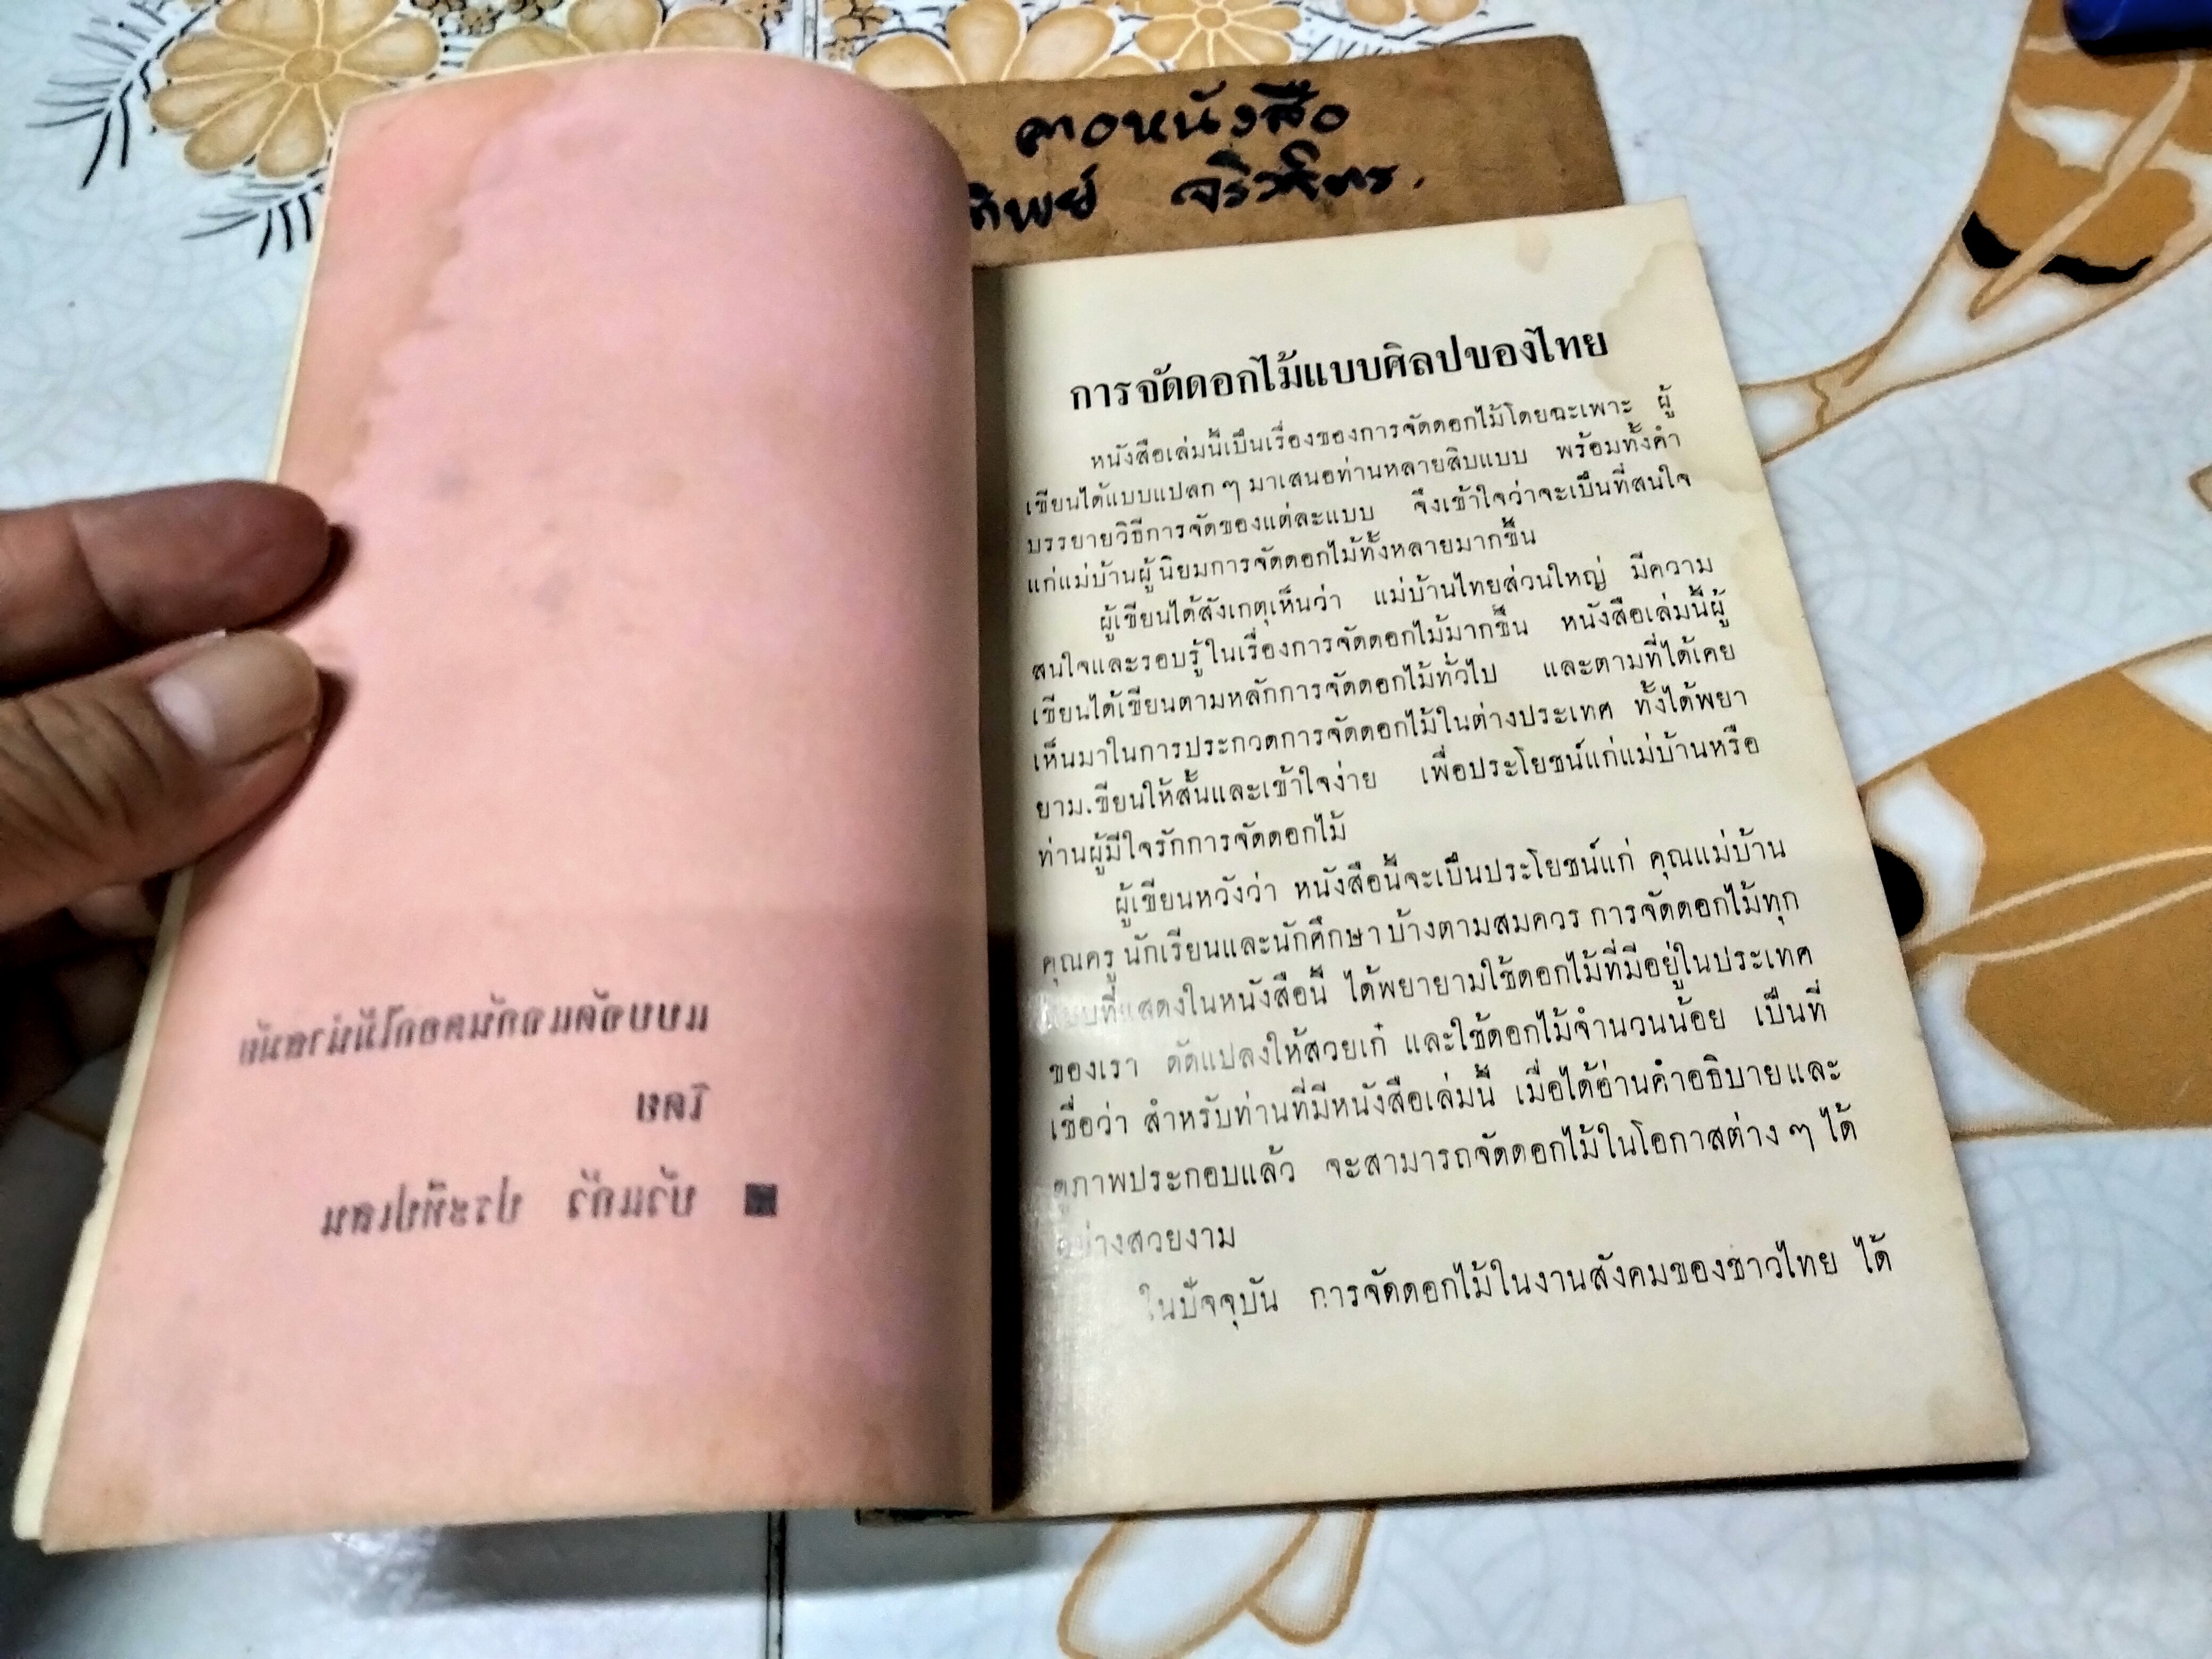 ตาอหนังสือ
ทิพย์
การจัดดอกไม้แบบศิลปของไทย
หนังสือเล่มนี้เป็นเรื่องของการจัดดอกไม้โดยฉะเพาะ ผู้
เขียนได้แบบแปลก ๆ มาเสนอท่านหลายสิบแบบ พร้อมทั้งคำ
บรรยายวิธีการจัดของแต่ละแบบ จึงเข้าใจว่าจะเป็นที่สนใจ
แก่แม่บ้านผู้นิยมการจัดดอกไม้ทั้งหลายมากขึ้น
ผู้เขียนได้สังเกตุเห็นว่า แม่บ้านไทยส่วนใหญ่ มีความ
สนใจและรอบรู้ในเรื่องการจัดดอกไม้มากขึ้น หนังสือเล่มนี้ผู้
เขียนได้เขียนตามหลักการจัดดอกไม้ทั่วไป และตามที่ได้เคย
เห็นมาในการประกวดการจัดดอกไม้ในต่างประเทศ ทั้งได้พยา
ยาม.เขียนให้สั้นและเข้าใจง่าย เพื่อประโยชน์แก่แม่บ้านหรือ
ท่านผู้มีใจรักการจัดดอกไม้
ผู้เขียนหวังว่า หนังสือนี้จะเป็นประโยชน์แก่ คุณแม่บ้าน
คุณครู นักเรียนและนักศึกษาบ้างตามสมควร การจัดดอกไม้ทุก
แบบที่แสดงในหนังสือนี้ ได้พยายามใช้ดอกไม้ที่มีอยู่ในประเทศ
ของเรา ดัดแปลงให้สวยเก๋ และใช้ดอกไม้จำนวนน้อย เป็นที่
เชื่อว่า สำหรับท่านที่มีหนังสือเล่มนี้ เมื่อได้อ่านคำอธิบายและ
ดูภาพประกอบแล้ว จะสามารถจัดดอกไม้ในโอกาสต่าง ๆ ได้
อย่างสวยงาม
ในปัจจุบัน การจัดดอกไม้ในงานสังคมของชาวไทย ได้